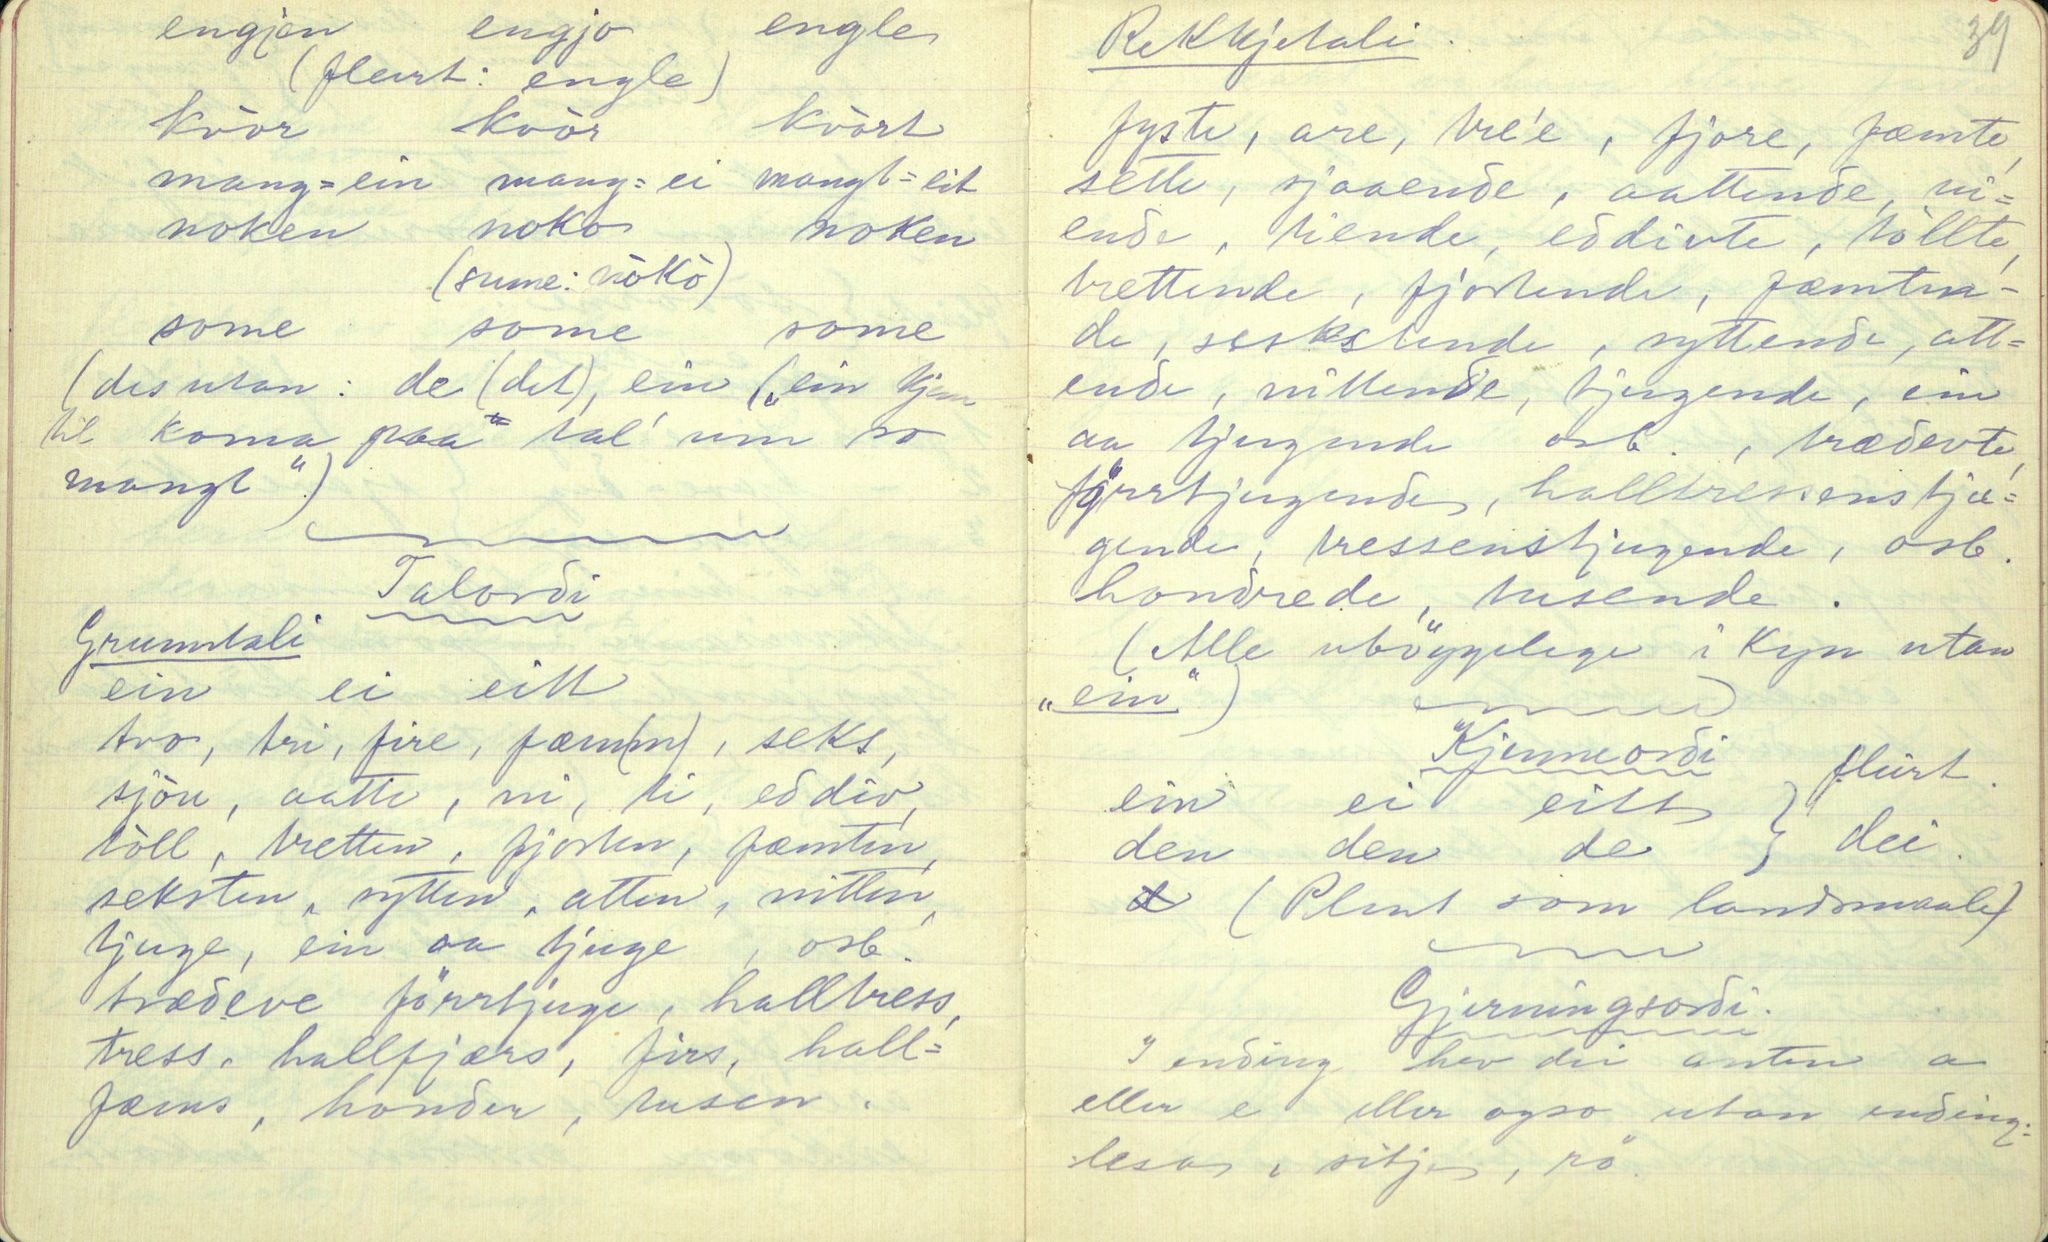 engjen engjo engle
(fleirt: engle)
kvòr kvòr kvòrt
mang=ein mang=ei mangt=eit
noken noko noken
(sume: nòkò)
some some some
(desutan: de (det), ein („ein kjem
til koma paa tal' um so
mangt")
Talorði
Grunntali
ein ei eitt
tvo, tri, fire, fæm(m), seks,
sjöu, aatte, ni, ti, eðdiv,
tòll, tretten, fjorten, fæmten,
seksten, sytten, atten, nitten,
tjuge, ein aa tjuge, osb.
træðeve förrtjuge, halltress,
tress, hallfjærs, firs, hall=
fæms, honder, tusen.
Rekkjetali 39
fyste, are, tre'e, fjore, fæmte,
sette, sjaaende, aattende, ni=
ende, tiende, eðdivte, tòllte,
trettende, fjortende, fæmten-
de, sekstende, syttende, att=
ende, nittende, tjugende, ein
aa tjugende osb., træðevte,
förrtjugende, halltressenstju=
gende, tressenstjugende, osb.
hondrede, tusende.
(Alle uböyggelege i kyn utan
„ein")
Kjenneorði
ein ei eitt } fleirt.
den den de } dei.
(Plent som landsmaale)
Gjerningsorði.
I ending hev dei anten a
eller e eller ogso utan ending:
lesa, sitje, ro.